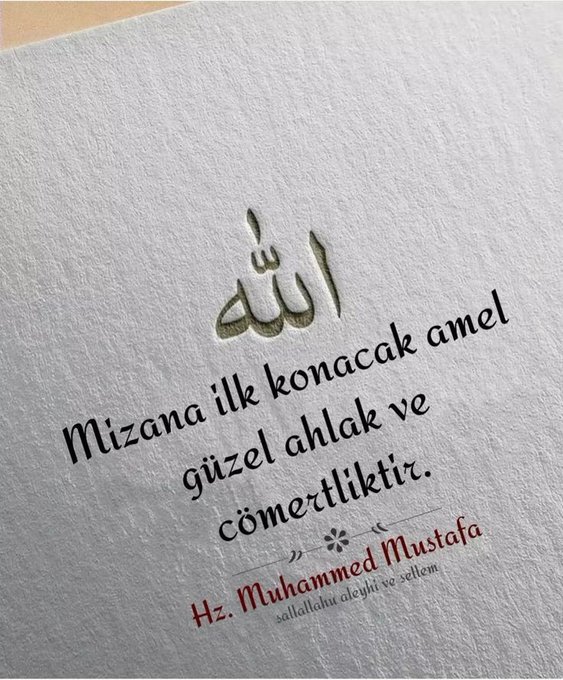 الله
Mizana ilk konacak amel
güzel ahlak ve
cömertliktir.
Hz. Muhammed Mustafa
sallallahu aleyhi ve sellem